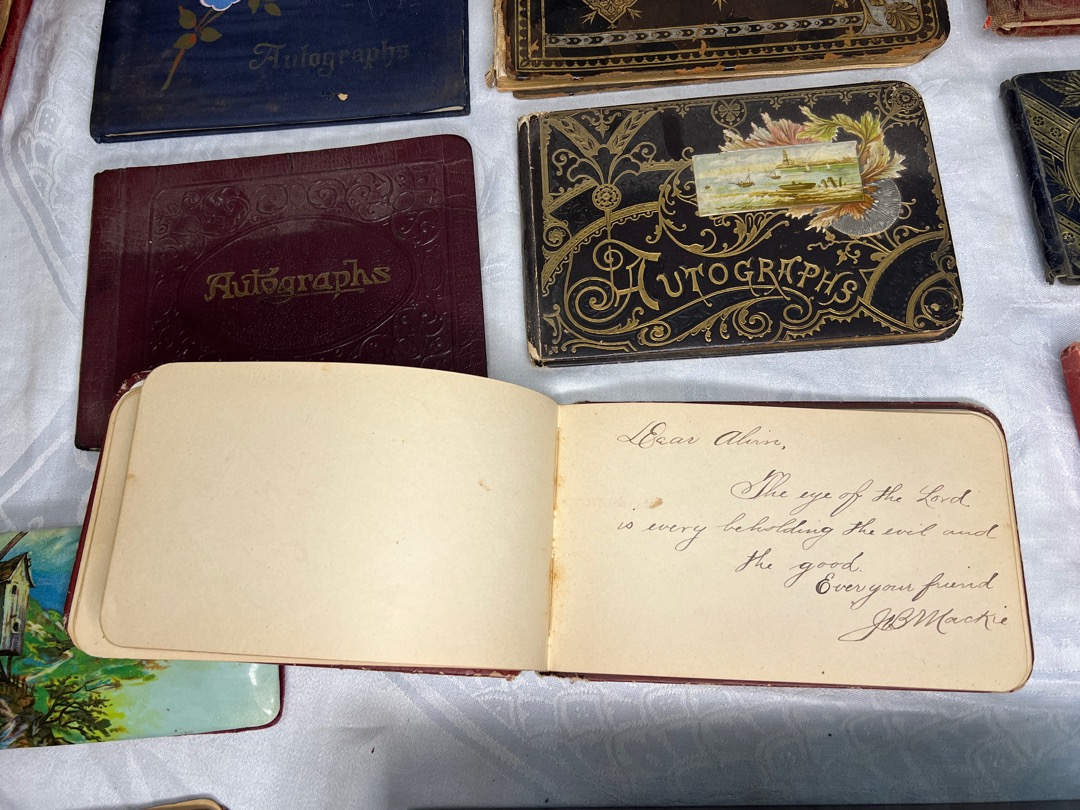 Autographs
Autographs
AUTOGRAPHS
Dear Alvin,
The eye of the Lord
is every beholding the evil and
the good.
Ever your friend
JBMackie